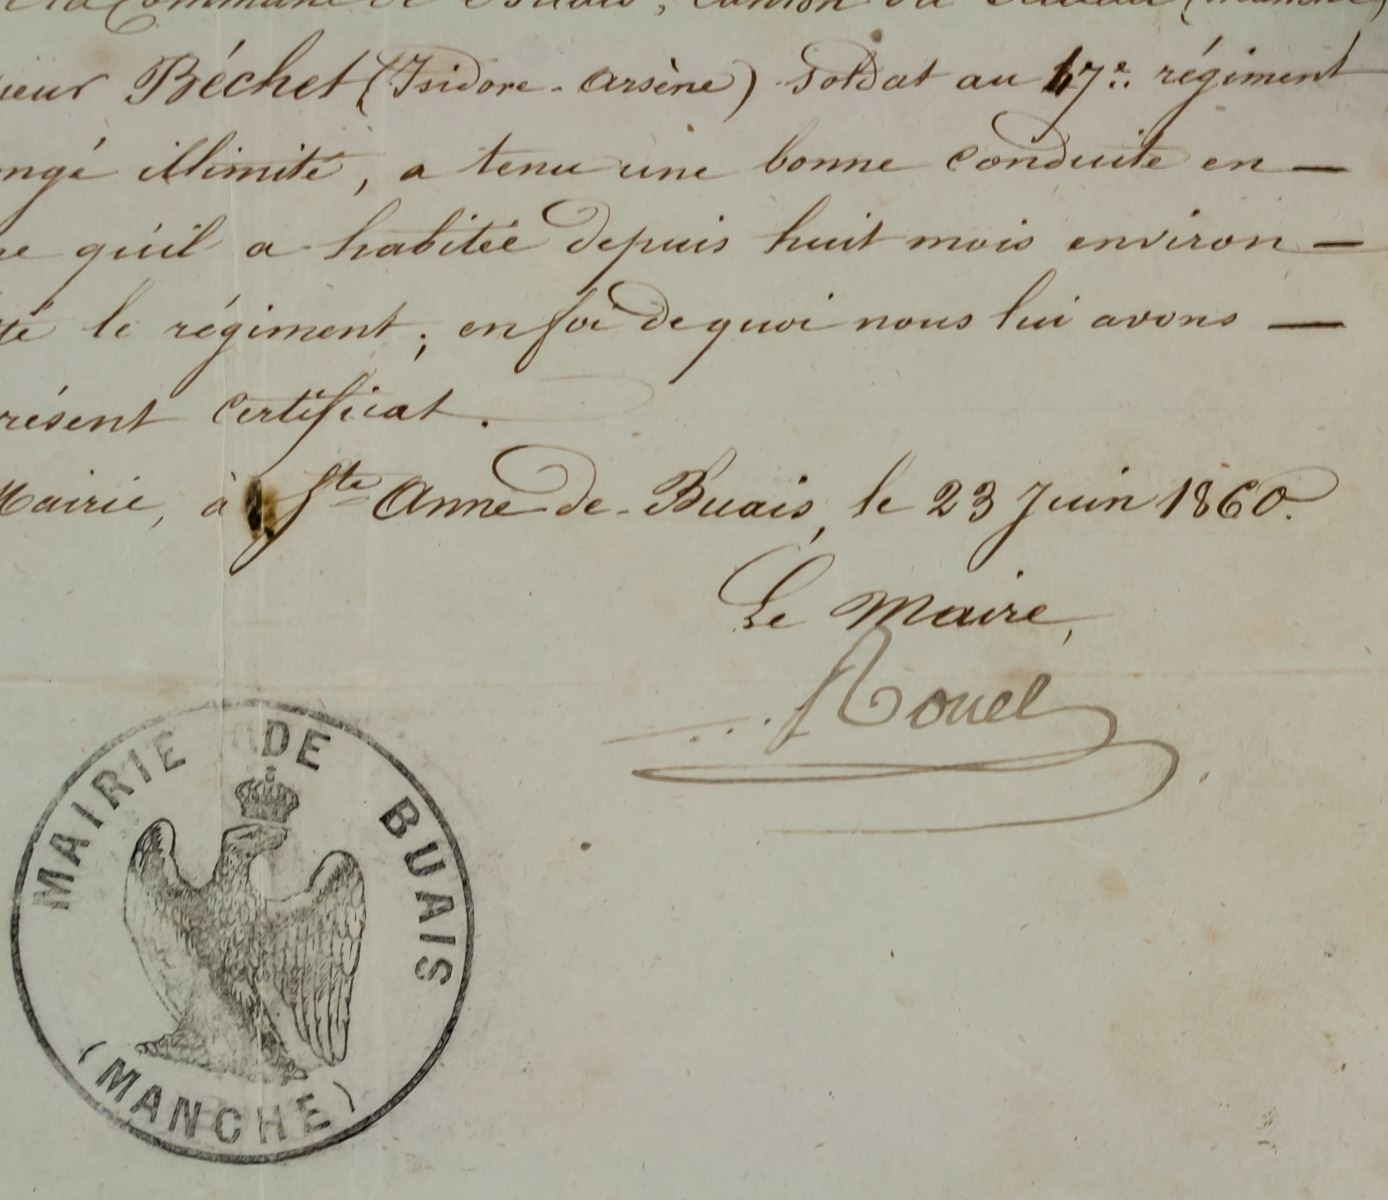 la Commune de Buais, Canton du (Manche)
ieur Béchet (Isidore-Arsène) Soldat au 17e. régiment
ngé illimité, a tenu une bonne conduite en —
ne qu'il a habitée depuis huit mois environ —
té le régiment; en foi de quoi nous lui avons —
résent certificat.
Mairie, à Ste Anne-de-Buais, le 23 Juin 1860.
Le Maire,
Rouel
MAIRIE DE BUAIS
(MANCHE)